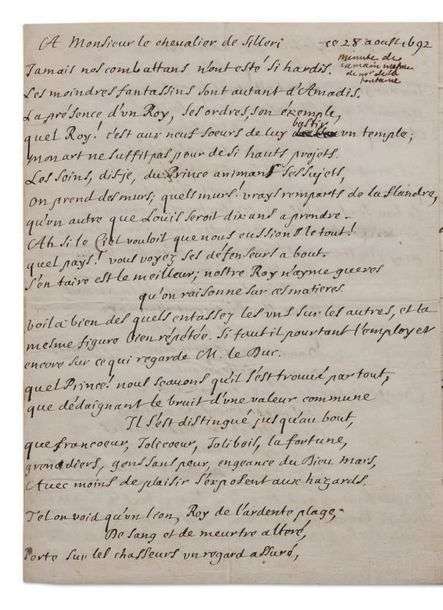 A Monsieur le chevalier de Silleri ce 28 aoust 1692
minute de
sa main mesme
de mr de la
fontaine
Jamais nos combattans n'ont esté si hardis.
Les moindres fantassins sont autant d'Amadis.
La présence d'un Roy, ses ordres, son éxemple,
quel Roy! c'est aux neuf soeurs de luy bastir un temple;
mon art ne suffit pas pour de si hauts projets.
Les soins, dis je, du Prince animans ses sujets,
on prend des murs, quels murs! vrays remparts de la Flandre,
qu'un autre que Loüis seroit dix ans a prendre.
Ah si le Ciel vouloit que nous eussion le tout!
quel païs! vous voyez ses défenseurs à bout.
s'en taire est le meilleur; nostre Roy n'ayme gueres
qu'on raisonne sur ces matieres
voila bien des quels entassez les uns sur les autres, et la
mesme figure bien répétée. Si faut il pourtant l'employer
encore sur ce qui regarde M. le Duc.
quel Prince! nous scavons qu'il s'est trouvé par tout,
que dédaignant le bruit d'une valeur commune
Il s'est distingué jusqu'au bout,
que francoeur, Jolicoeur, Jolibois, la fortune,
grenadiers, gens sans peur, engeance du Dieu Mars,
Avec moins de plaisir s'exposent aux hazards.
Tel on void qu'un lion, Roy de l'ardente plage,
De sang et de meurtre alteré,
Porte sur les chasseurs un regard assuré,